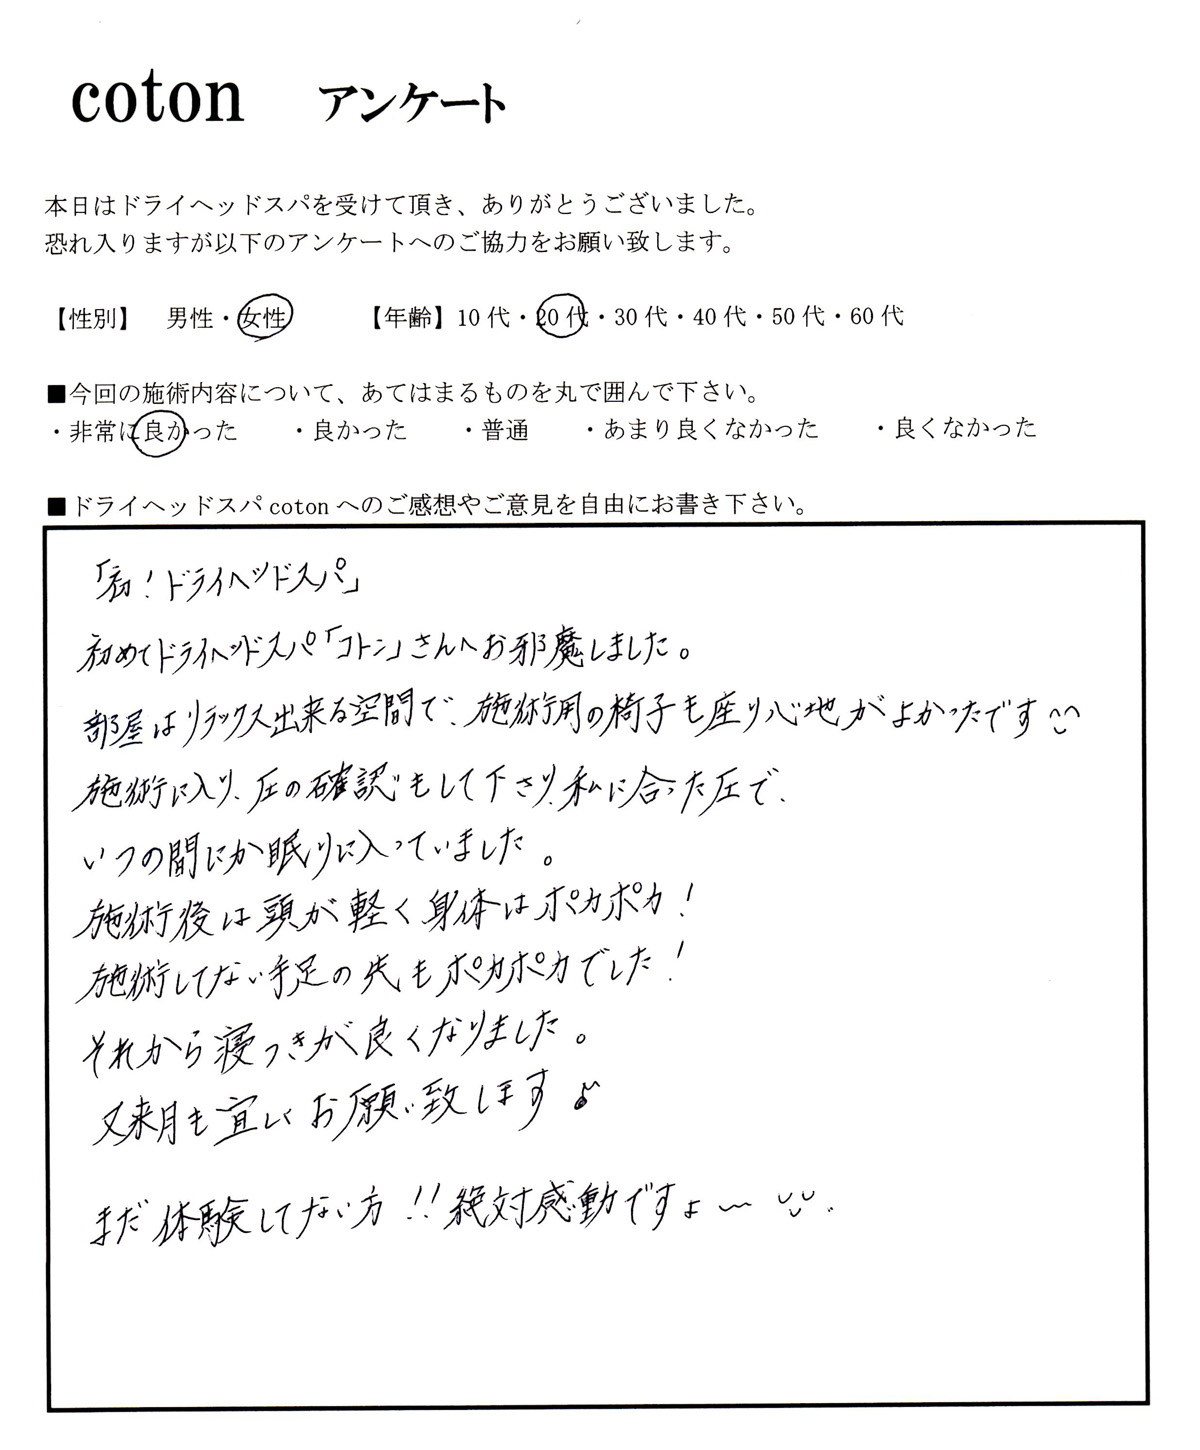 coton アンケート
本日はドライヘッドスパを受けて頂き、ありがとうございました。
恐れ入りますが以下のアンケートへのご協力をお願い致します。
【性別】 男性・女性 【年齢】10代・20代・30代・40代・50代・60代
■今回の施術内容について、あてはまるものを丸で囲んで下さい。
・非常に良かった ・良かった ・普通 ・あまり良くなかった ・良くなかった
■ドライヘッドスパcotonへのご感想やご意見を自由にお書き下さい。
「初！ドライヘッドスパ」
初めてドライヘッドスパ「コトン」さんへお邪魔しました。
部屋はリラックス出来る空間で、施術用の椅子も座り心地がよかったです
施術に入り、圧の確認もして下さり、私に合った圧で、
いつの間にか眠りに入っていました。
施術後は頭が軽く身体はポカポカ！
施術してない手足の先もポカポカでした！
それから寝つきが良くなりました。
又来月も宜しくお願い致します♪
まだ体験してない方！！絶対感動ですょ〜